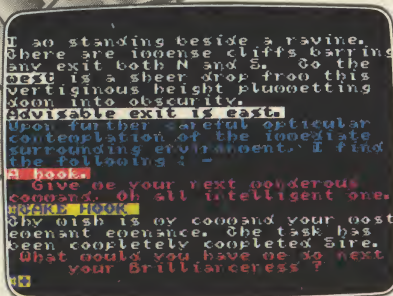 I am standing beside a ravine.
There are immense cliffs barring
any exit both N and S. To the
west is a sheer drop from this
vertiginous height plummetting
down into obscurity.
Advisable exit is east.
Upon further careful opticular
contemplation of the immediate
surrounding environment, I find
the following : -
A hook.
Give me your next wonderous
command, Oh all intelligent one.
TAKE HOOK
Thy wish is my command your most
emenant emenance. The task has
been completely completed Sire.
What would you have me do next
your Brillianceress ?